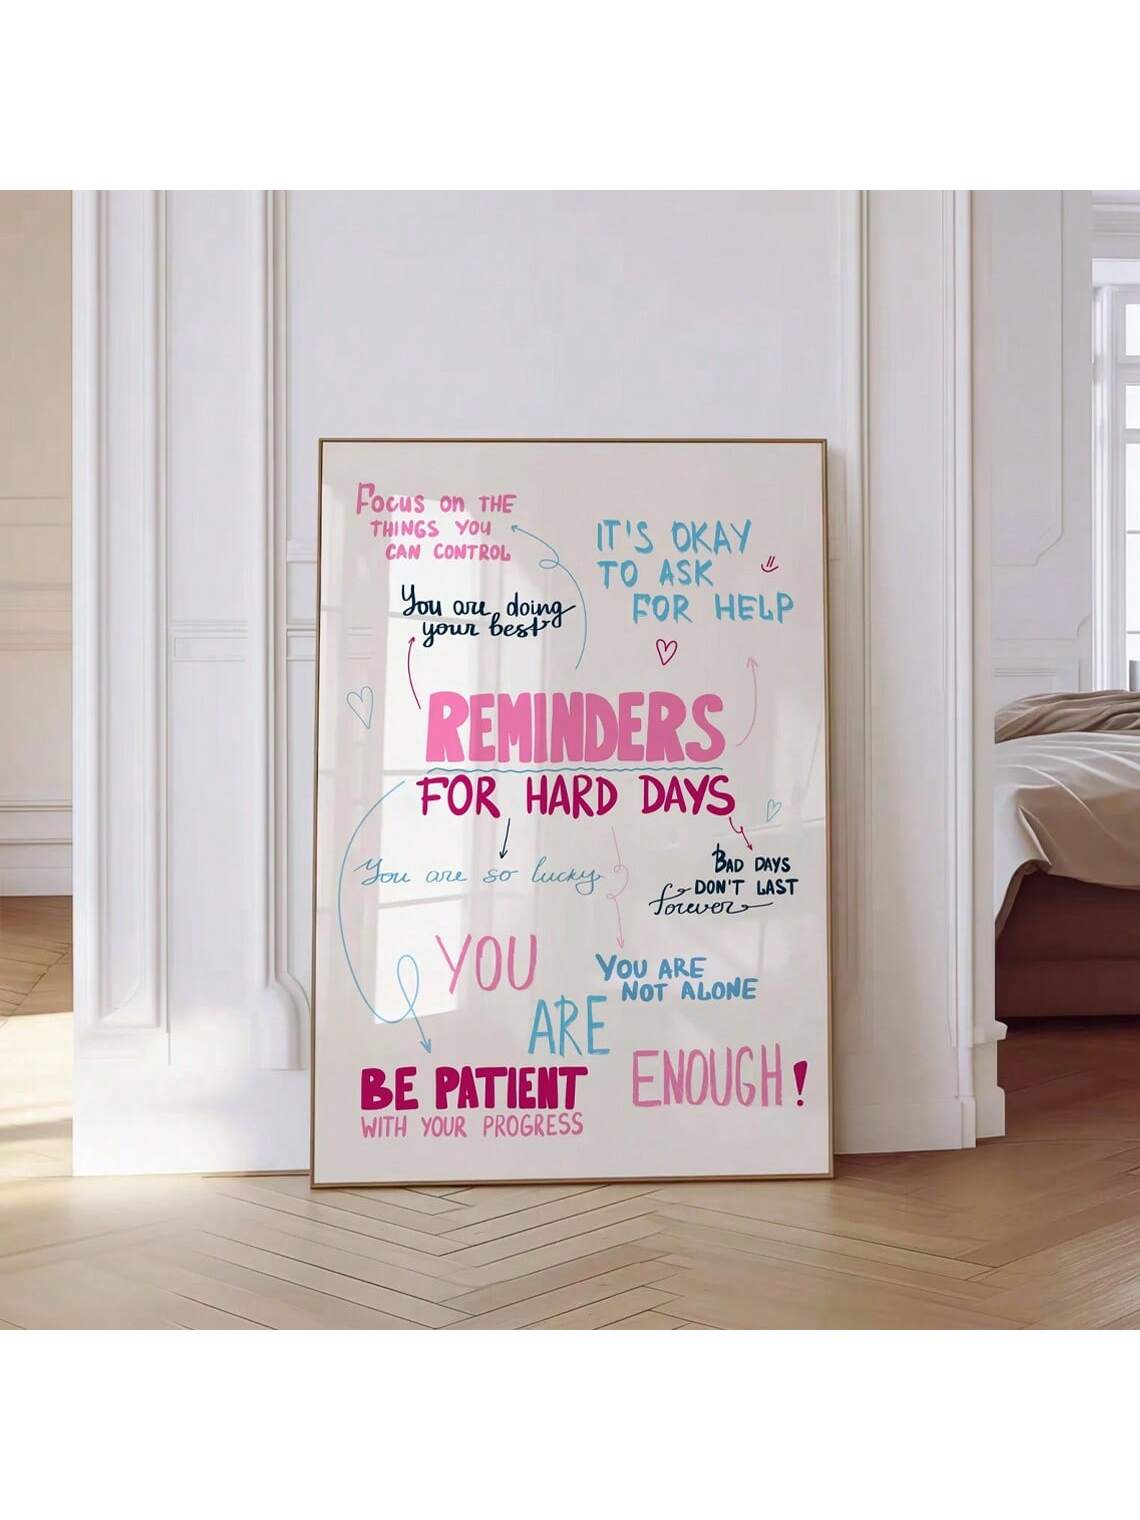 Focus on THE
THINGS YOU
CAN CONTROL
IT'S OKAY
TO ASK
FOR HELP
You are doing
your best
REMINDERS
FOR HARD DAYS
You are so lucky
BAD DAYS
DON'T LAST
forever
YOU
ARE
ENOUGH!
YOU ARE
NOT ALONE
BE PATIENT
WITH YOUR PROGRESS